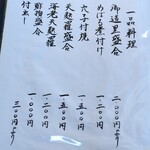 一品料理
御造り盛合 二、〇〇〇円より
めばる煮付け 一、二〇〇円
穴子付焼 一、五〇〇円
天麩羅盛合 一、五〇〇円
海老天麩羅 一、八〇〇円
酢物盛合 一、〇〇〇円
付出し 三〇〇円より